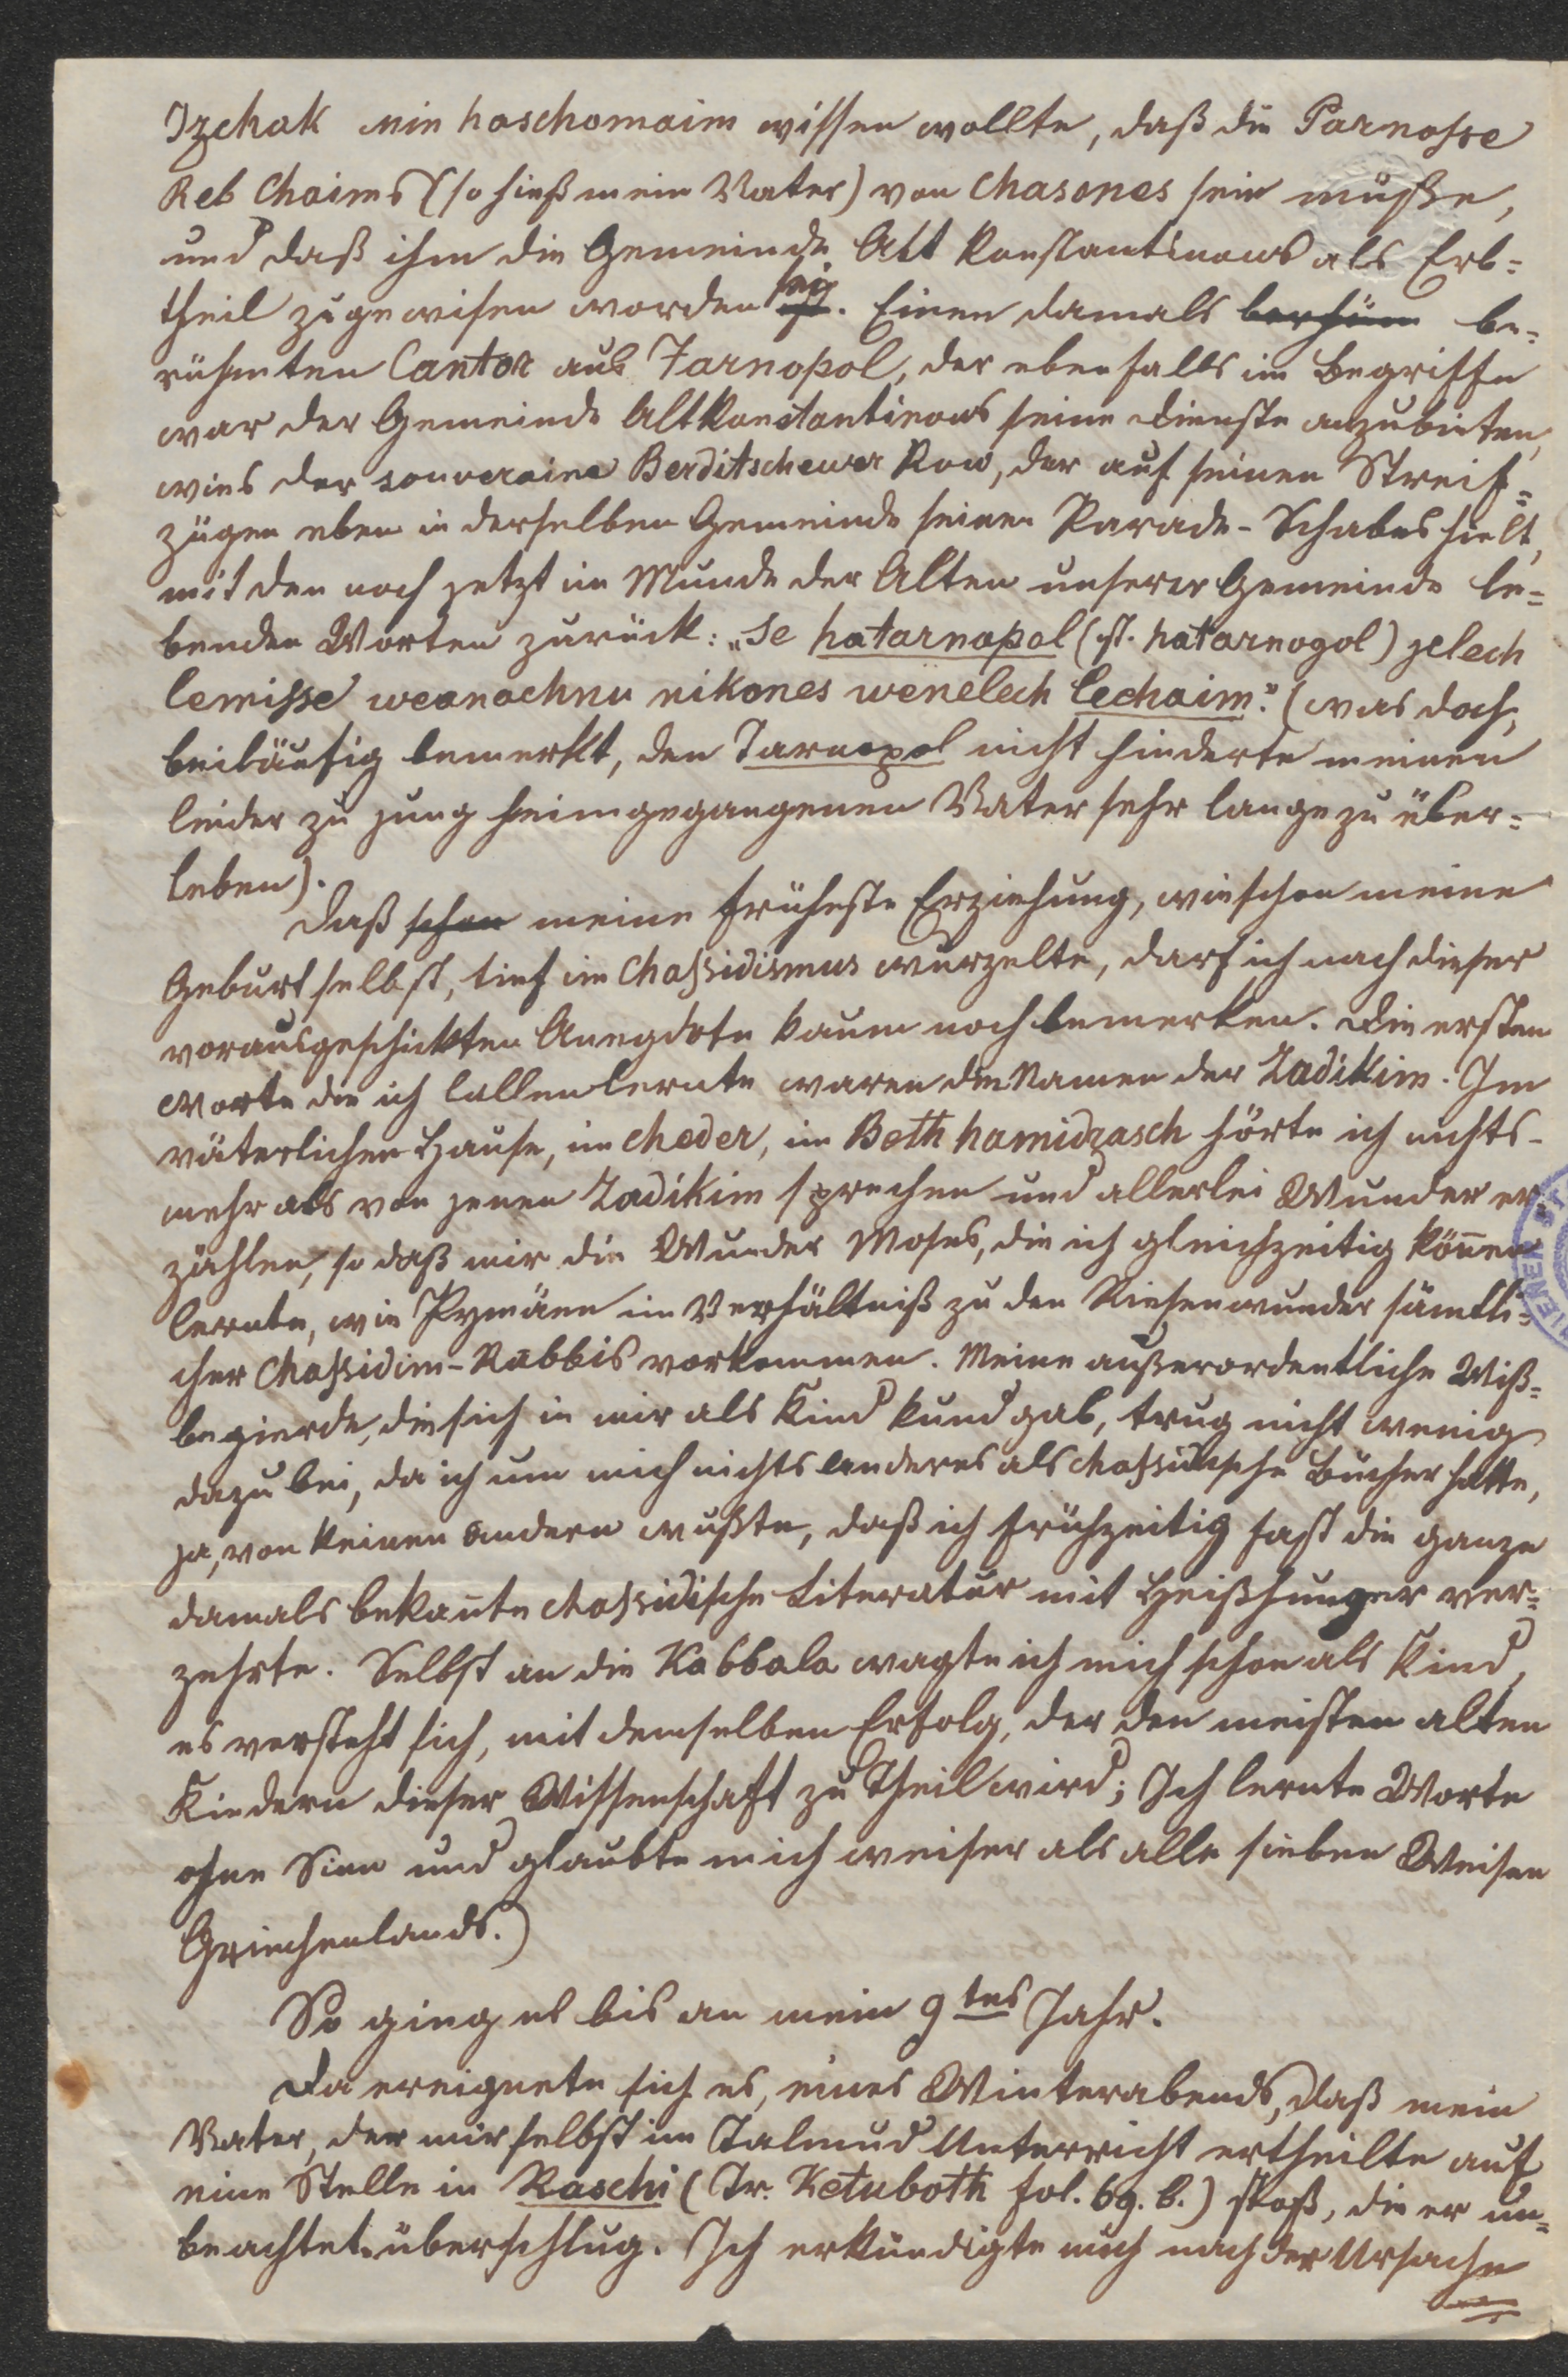 Izchak min haschomaim wissen wollte, daß die Parnosse
Reb Chaims (so hieß mein Vater) von Chasones sein müsse,
und daß ihm die Gemeinde Alt Konstantinows als Erb=
theil zugewisen worden ist sei. Einen damals berhüm be=
rühmten Cantor aus Tarnopol, der ebenfalls im Begriffe
war der Gemeinde Altkonstantinows seine Dienste anzubieten,
wies der souveraine Berditschewer Row, der auf seinen Streif=
zügen eben in derselben Gemeinde seinen Parade-Schabes hielt,
mit den noch jetzt im Munde der Alten unserer Gemeinde le=
benden Worten zurück: „Se hatarnopol (st. hatarnogol) jelech
lemisse weanachnu nikones wenelech lechaim." (was doch,
beiläufig bemerkt, den Tarnopol nicht hinderte meinen
leider zu jung heimgegangenen Vater sehr lange zu über=
leben).
Daß schon meine früheste Erziehung, wie schon meine
Geburt selbst, tief im Chassidismus wurzelte, darf ich nach dieser
vorausgeschickten Anegdote kaum noch bemerken. Die ersten
Worte die ich lallen lernte waren die Namen der Zadikim. Im
väterlichen Hause, im Cheder, im Beth hamidrasch hörte ich nichts-
mehr als von jenen Zadikim sprechen und allerlei Wunder er=
zählen, so daß mir die Wunder Moses, die ich gleichzeitig können
lernte, wie Pymäen im Verhältniß zu den Riesenwunder sämtli=
cher Chassidim-Rabbis vorkommen. Meine außerordentliche Wiß=
begierde, die sich in mir als Kind kund gab, trug nicht wenig
dazu bei, da ich um mich nichts Anderes als chassidische Bücher hatte,
ja, von keinen andern wußte, daß ich frühzeitig fast die ganze
damals bekannte chassidische Literatur mit Heißhunger ver=
zehrte. Selbst an die Kabbala wagte ich mich schon als Kind,
es versteht sich, mit demselben Erfolg, der den meisten alten
Kindern dieser Wissenschaft zu Theil wird; Ich lernte Worte
ohne Sinn und glaubte mich weiser als alle sieben Weisen
Griechenlands.)
So ging es bis an mein 9tes Jahr.
Da ereignete sich es, eines Winterabends, daß mein
Vater, der mir selbst im Talmud Unterricht ertheilte auf
eine Stelle in Raschi (Tr. Ketuboth fol. 69. b.) stoß, die er un=
beachtet überschlug. Ich erkündigte mich nach der Ursache